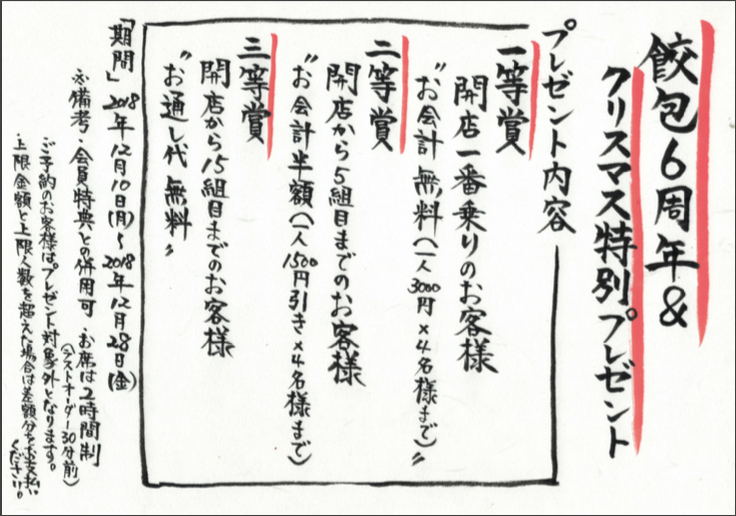 餃包6周年&
クリスマス特別プレゼント
プレゼント内容
一等賞
開店一番乗りのお客様
〝お会計 無料(一人3000円×4名様まで)〟
二等賞
開店から5組目までのお客様
〝お会計半額(一人1500円引き×4名様まで)
三等賞
開店から15組目までのお客様
〝お通し代 無料〟
「期間」2018年12月10日(月)〜2018年12月28日(金)
※備考・会員特典との併用可 ・お席は2時間制
(ラストオーダー30分前)
・ご予約のお客様はプレゼント対象外となります。
・上限金額と上限人数を超えた場合は差額分をお支払い
ください。